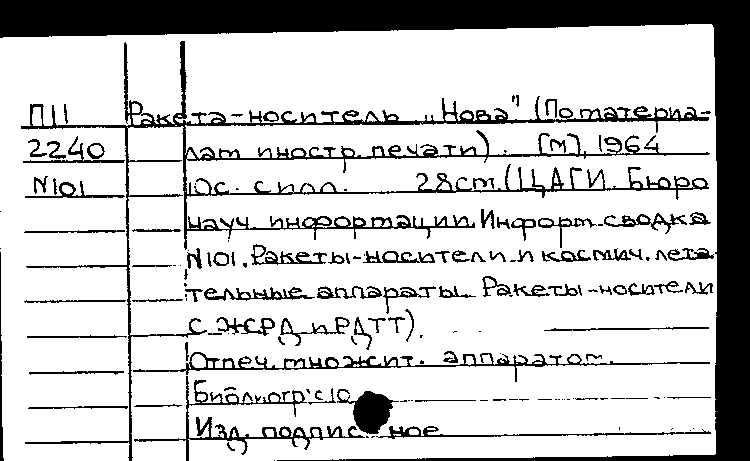 П11 Ракета-носитель „Нова" (По материа-
2240 лам иностр. печати). [М], 1964
N101 10с. с илл. 28см.(ЦАГИ. Бюро
науч. информации. Информ. сводка
N101. Ракеты-носители и космич. лета-
тельные аппараты. Ракеты-носители
с ЖРД и РДТТ).
Отпеч. множит. аппаратом.
Библиогр: с 10
Изд. подписное